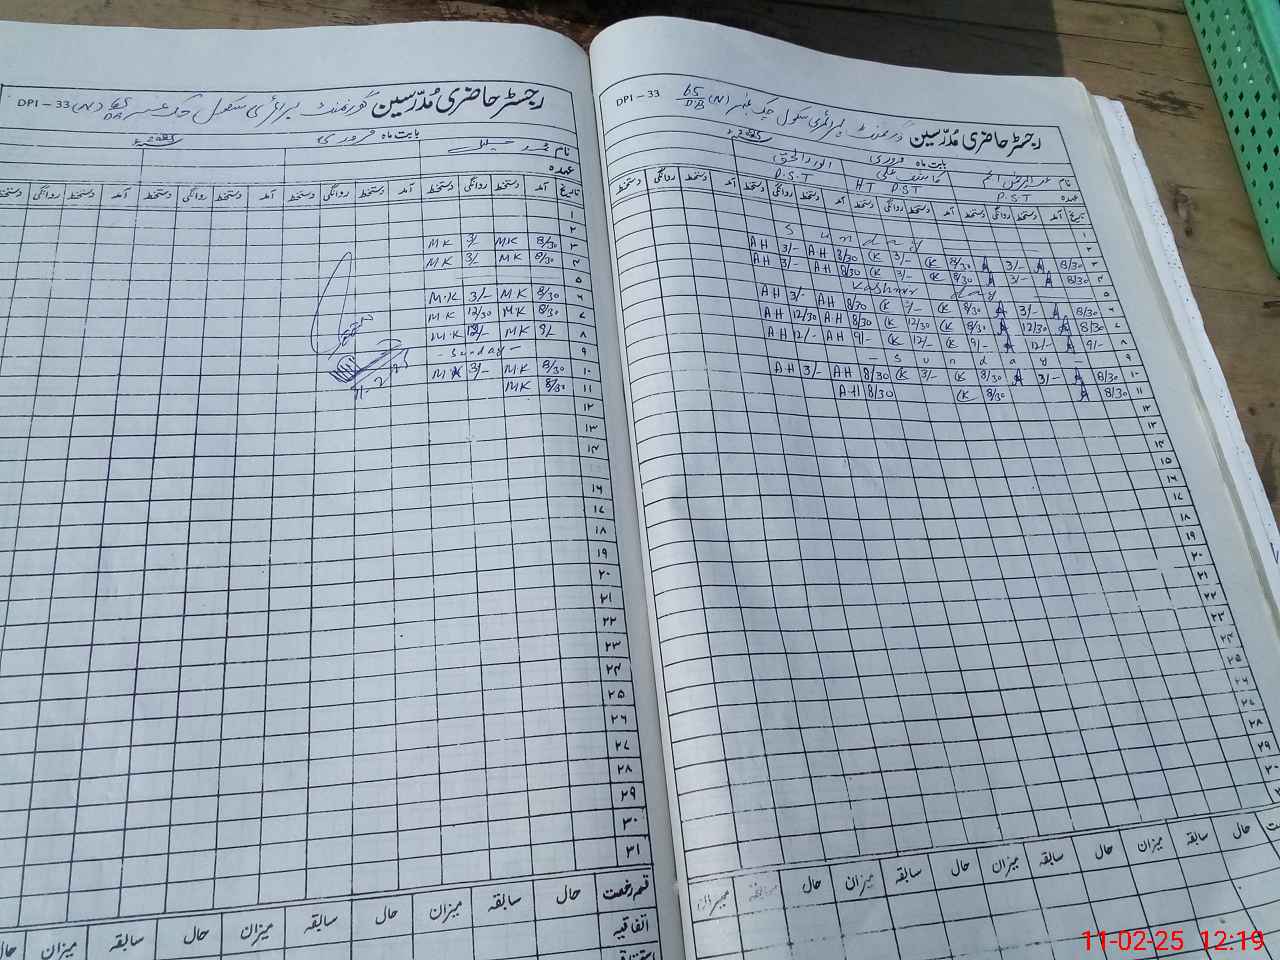 رجسٹر حاضری مُدرّسین گورنمنٹ پرائمری سکول چک نمبر 65/DB (N)
DPI – 33
بابت ماہ فروری 2025ء
نام
عہدہ
تاریخ آمد دستخط روانگی دستخط آمد دستخط روانگی دستخط آمد دستخط روانگی دستخط
۱
۲
۳ 8/30 MK 3/- MK
۴ 8/30 MK 3/- MK
۵
۶ 8/30 M.K 3/- M.K
۷ 8/30 MK 12/30 MK
۸ 9/- MK 12/- M.K
۹ - Sunday -
۱۰ 8/30 MK 3/- MK
۱۱ 8/30 MK
۱۲
۱۳
۱۴
۱۶
۱۷
۱۸
۱۹
۲۰
۲۱
۲۲
۲۳
۲۴
۲۵
۲۶
۲۷
۲۸
۲۹
۳۰
۳۱
قسم رخصت حال سابقہ میزان حال سابقہ میزان حال سابقہ میزان حال
اتفاقیہ
رجسٹر حاضری مُدرّسین گورنمنٹ پرائمری سکول چک نمبر 65/DB (N)
DPI – 33
بابت ماہ فروری 2025ء
نام کاشف علی انوار الحق
عہدہ P.S.T HT PST P.S.T
تاریخ آمد دستخط روانگی دستخط آمد دستخط روانگی دستخط آمد دستخط روانگی دستخط آمد دستخط روانگی دستخط
۱
۲ Sunday
۳ 8/30 A 3/- A 8/30 CK 3/- CK 8/30 AH 3/- AH
۴ 8/30 A 3/- A 8/30 CK 3/- CK 8/30 AH 3/- AH
۵ Kashmir day
۶ 8/30 A 3/- A 8/30 CK 3/- CK 8/30 AH 3/- AH
۷ 8/30 A 12/30 A 8/30 CK 12/30 CK 8/30 AH 12/30 AH
۸ 9/- A 12/- A 9/- CK 12/- CK 9/- AH 12/- AH
۹ - Sunday -
۱۰ 8/30 A 3/- A 8/30 CK 3/- CK 8/30 AH 3/- AH
۱۱ 8/30 A 8/30 CK 8/30 AH
۱۲
۱۳
۱۴
۱۵
۱۶
۱۷
۱۸
۱۹
۲۰
۲۱
۲۲
۲۳
۲۴
۲۵
۲۶
۲۷
۲۸
۲۹
۳۰
حال سابقہ میزان حال سابقہ میزان حال سابقہ میزان حال سابقہ میزان
11-02-25 12:19